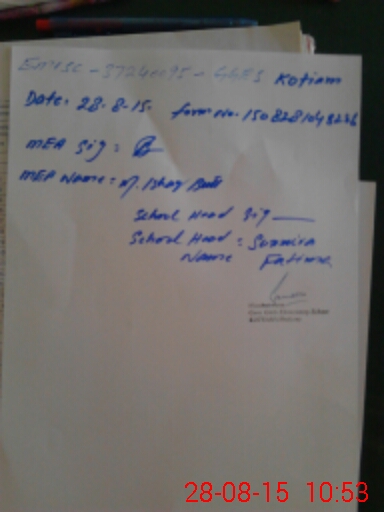 Emisc - 37240095 - GGES Kotiam
Date: 28-8-15. form No. 150828104822
MEA Sig :
MEA Name: M. Ishaq Butt
School Head Sig
School Head : Summira
Name Fatima
28-08-15 10:53